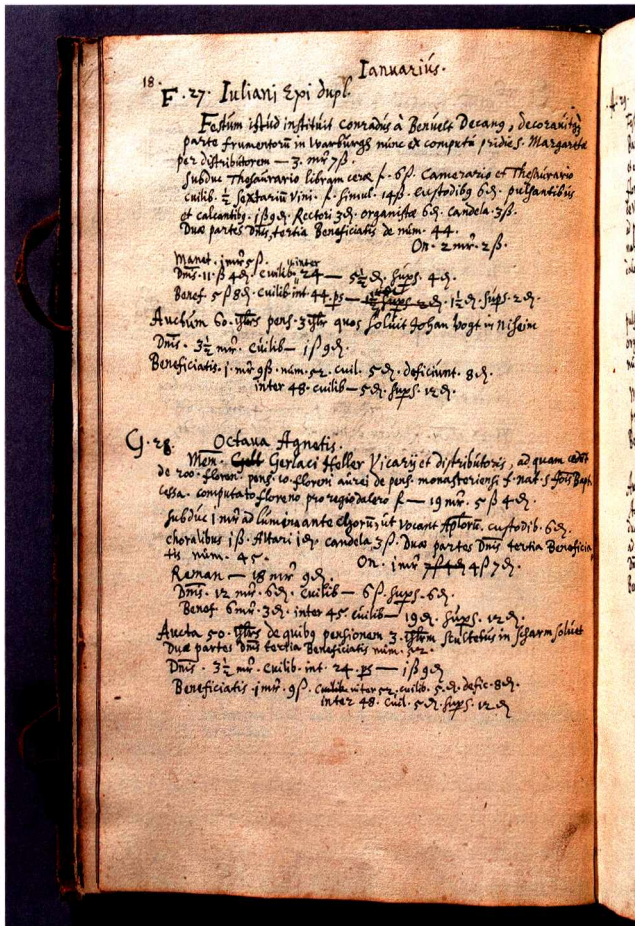 Ianuarius.
18.
F. 27. Iuliani Epi dupl.
Festum istud instituit Conradus à Benuelt Decanq, decorauitq
parte frumentorū in Warburgh nunc ex computu pridie S. Margaretæ
per distributorem — 3. mr 7ß.
Subduc Thesaurario libram ceræ f. 6ß. Camerario et Thesaurario
cuilib. ½ sextariū vini. f. simul. 14ß. Custodibq 6 ₰. pulsantibus
et calcantibq. jß 9₰. Rectori 3₰. organistæ 6₰. Candela. 3ß.
Duæ partes Dnis, tertia Beneficiatis de num. 44.
On. 2 mr. 2ß.
Manet. j mr 5ß.
Dnis. 11. ß 4₰. Cuilib. inter 24 — 5½ ₰. sups. 4₰.
Benef. 5ß 8₰. Cuilib int 44. ps — 1½ ₰. sups. 2₰.
Auctum 60. pens. 3 quos soluit Johan Vogt in Niheim
Dnis. 3½ mr. Cuilib — jß 9₰.
Beneficiatis. j. mr 9ß. num. 52. cuil. 5₰. deficiunt. 8₰.
inter 48. cuilib — 5₰. sups. 12₰.
G. 28. Octaua Agnetis.
Mem. Gerlaci Holler Vicarij et distributoris, ad quam cedunt
de 200. floren. pens. 10. floreni aurei de pens. monasteriensi f. nat. S. Jois Bapt.
cessa. computato floreno pro regio dalero f — 19 mr. 5 ß 4₰.
Subduc 1 mr ad lumina ante Chorum, ut vocant Aplorū. Custodib. 6₰.
choralibus jß. Altari j₰. candela 3ß. Duæ partes Dnis tertia Beneficia
tis num. 45. On. j mr 4ß 7₰.
Reman — 18 mr 9₰.
Dnis. 12 mr. 6₰. Cuilib — 6ß. sups. 6₰.
Benef. 6 mr. 3₰. inter 45 cuilib — 19₰. sups. 12₰.
Aucta 50. de quibq pensionem 3. Scultetus in Scharm soluet
Duæ partes Dnis tertia Beneficiatis num. 52.
Dnis. 3½ mr. Cuilib. int. 24. ps — jß 9₰
Beneficiatis j mr. 9ß. inter 52. cuilib. 5.₰. defic. 8₰.
inter 48. cuil. 5₰. sups. 12₰